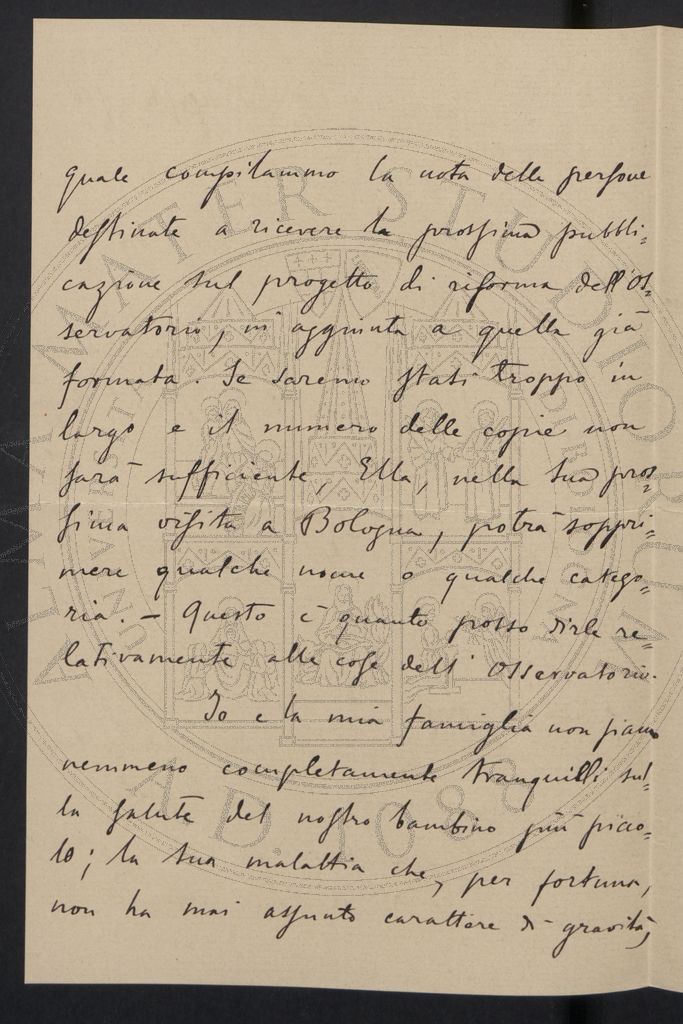 quale compilammo la nota delle persone
destinate a ricevere la prossima pubbli-
cazione sul progetto di riforma dell'Os-
servatorio, in aggiunta a quella già
formata. Se saremo stati troppo in
largo e il numero delle copie non
sarà sufficiente, Ella, nella sua pros-
sima visita a Bologna, potrà soppri-
mere qualche nome o qualche catego-
ria. – Questo è quanto posso dirle re-
lativamente alle cose dell'Osservatorio.
Io e la mia famiglia non siamo
nemmeno completamente tranquilli sul-
la salute del nostro bambino più picco-
lo; la sua malattia che, per fortuna,
non ha mai assunto carattere di gravità,
ALMA MATER STUDIORUM
A.D. 1088